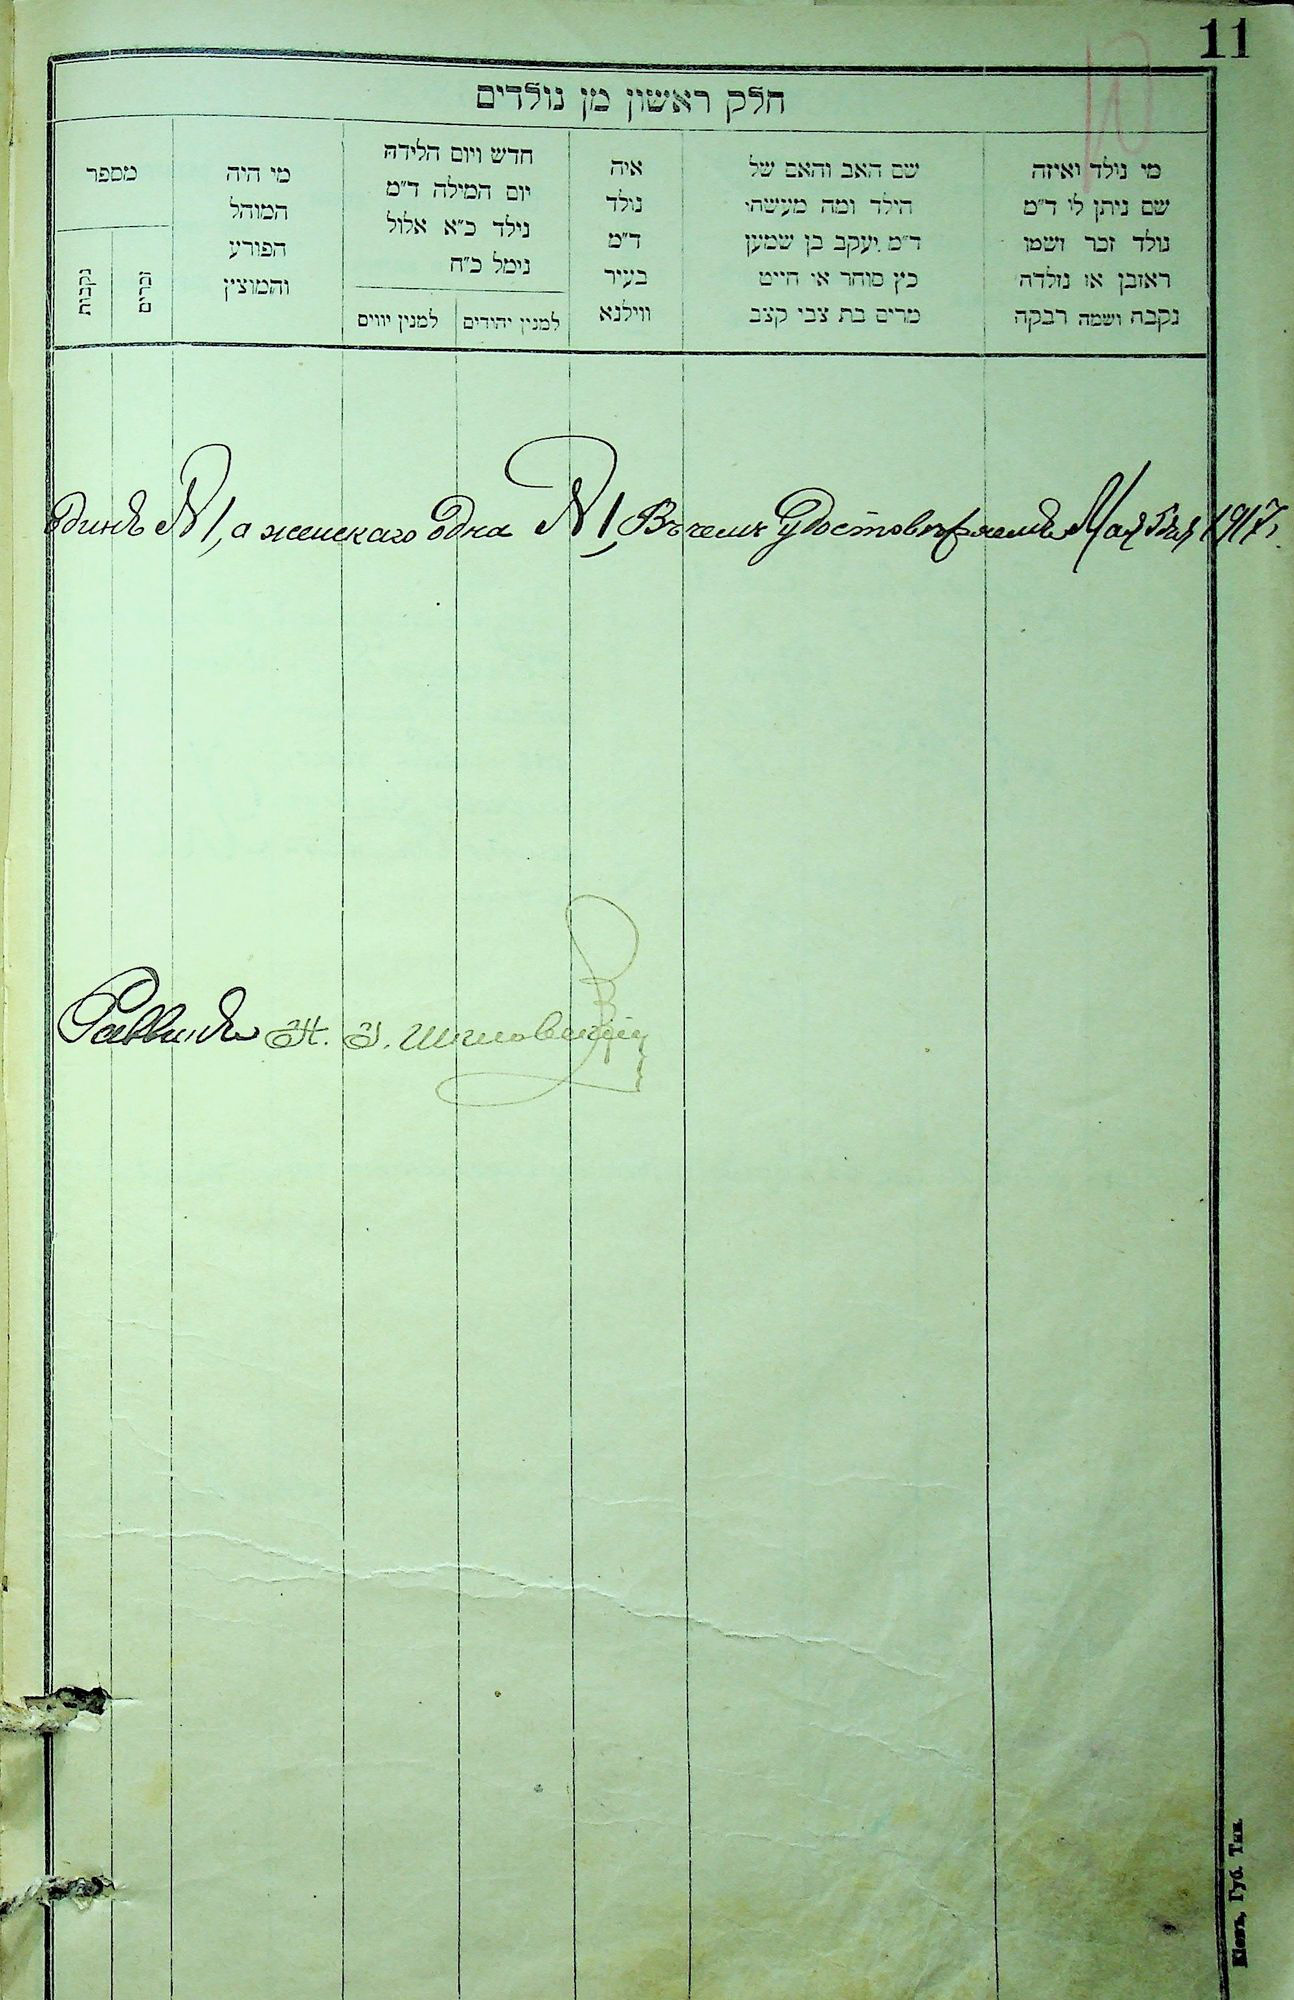 11
חלק ראשון מן נולדים
מי נולד ואיזה
שם ניתן לו ד״מ
נולד זכר ושמו
ראובן או נולדה
נקבה ושמה רבקה
שם האב והאם של
הילד ומה מעשהו
ד״מ יעקב בן שמעון
כץ סוחר או חייט
מרים בת צבי קצב
איה
נולד
ד״מ
בעיר
ווילנא
חדש ויום הלידה
יום המילה ד״מ
נילד כ״א אלול
נימל כ״ח
למנין יהודים
למנין יווים
מי היה
המוהל
הפורע
והמוצין
מספר
זכרים
נקבות
одинъ № 1, а женскаго одна № 1, Въ чемъ удостовѣряемъ Мая 1917
Раввинъ
Кіевъ, Губ. Тип.